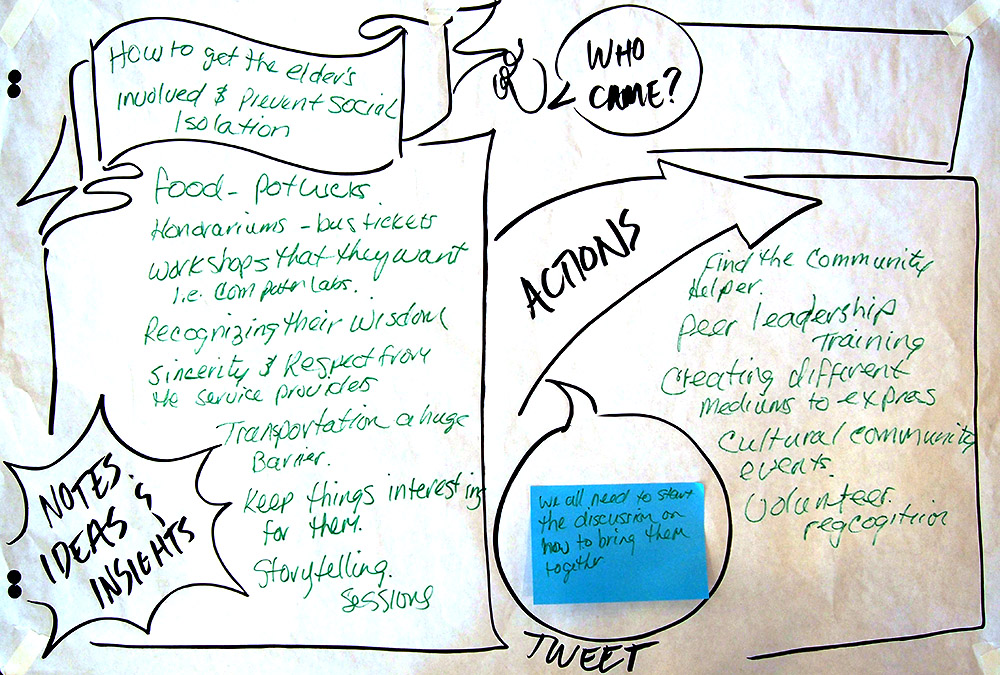 How to get the elder's
involved & Prevent social
Isolation
WHO
CAME?
food - potlucks
Honorariums - bus tickets
workshops that they want
i.e. computer labs.
Recognizing their wisdom
sincerity & Respect from
the service provides
Transportation a huge
Barrier.
Keep things interesting
for them.
Storytelling.
Sessions
NOTES,
IDEAS &
INSIGHTS
ACTIONS
find the community
Helper.
peer leadership
Training
Creating different
mediums to expras
Cultural community
events.
Volunteer.
regcogition
We all need to start
the discussion on
how to bring them
together
TWEET